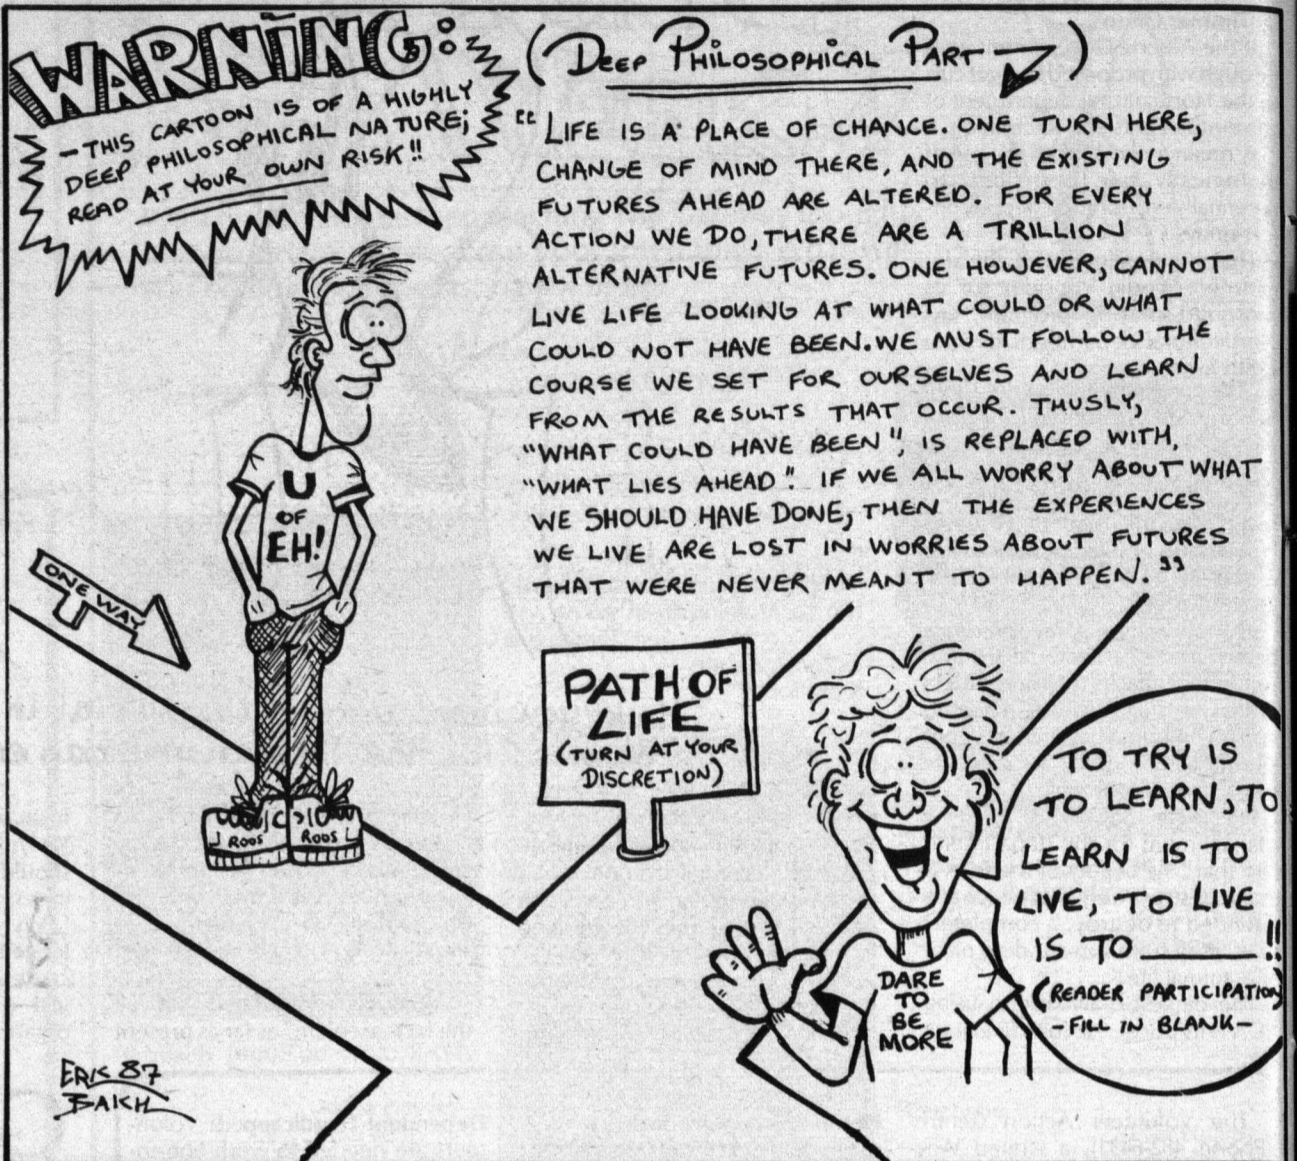 WARNING:
- THIS CARTOON IS OF A HIGHLY
DEEP PHILOSOPHICAL NATURE;
READ AT YOUR OWN RISK!!
(DEEP PHILOSOPHICAL PART )
"LIFE IS A PLACE OF CHANCE. ONE TURN HERE,
CHANGE OF MIND THERE, AND THE EXISTING
FUTURES AHEAD ARE ALTERED. FOR EVERY
ACTION WE DO, THERE ARE A TRILLION
ALTERNATIVE FUTURES. ONE HOWEVER, CANNOT
LIVE LIFE LOOKING AT WHAT COULD OR WHAT
COULD NOT HAVE BEEN. WE MUST FOLLOW THE
COURSE WE SET FOR OURSELVES AND LEARN
FROM THE RESULTS THAT OCCUR. THUSLY,
"WHAT COULD HAVE BEEN", IS REPLACED WITH,
"WHAT LIES AHEAD". IF WE ALL WORRY ABOUT WHAT
WE SHOULD HAVE DONE, THEN THE EXPERIENCES
WE LIVE ARE LOST IN WORRIES ABOUT FUTURES
THAT WERE NEVER MEANT TO HAPPEN."
U
OF
EH!
ONE WAY
ROOS
ROOS
PATH OF
LIFE
(TURN AT YOUR
DISCRETION)
TO TRY IS
TO LEARN, TO
LEARN IS TO
LIVE, TO LIVE
IS TO ________!!
(READER PARTICIPATION)
- FILL IN BLANK -
DARE
TO
BE
MORE
ERIK 87